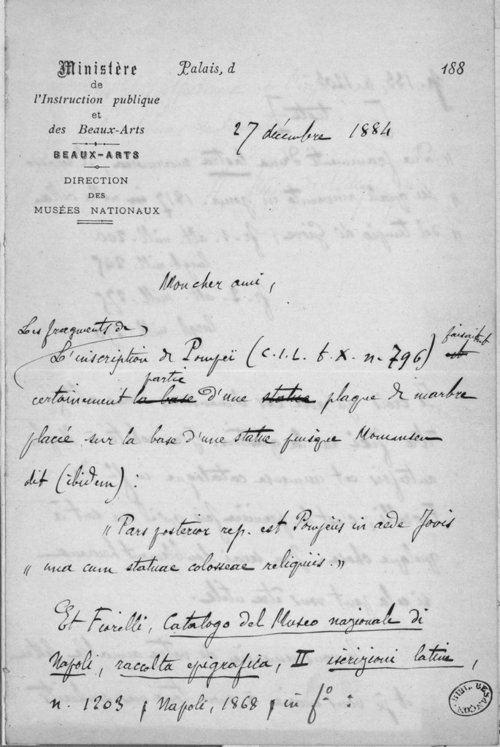 Ministère
de
l'Instruction publique
et
des Beaux-Arts
BEAUX-ARTS
DIRECTION
DES
MUSÉES NATIONAUX
Palais, d 188
27 décembre 1884
Mon cher ami,
Les fragments de
L'inscription de Pompeï (C.I.L. t. X. n. 796) faisait est
partie
certainement la base d'une statue plaque de marbre
placée sur la base d'une statue puisque Mommsen
dit (ibidem) :
"Pars posterior rep. est Pompeiis in aede Jovis
" una cum statuae colosseae reliquiis."
Et Fiorelli, Catalogo del Museo nazionale di
Napoli, raccolta epigrafica, II iscrizioni latine,
n. 1203, Napoli, 1868, in fº :